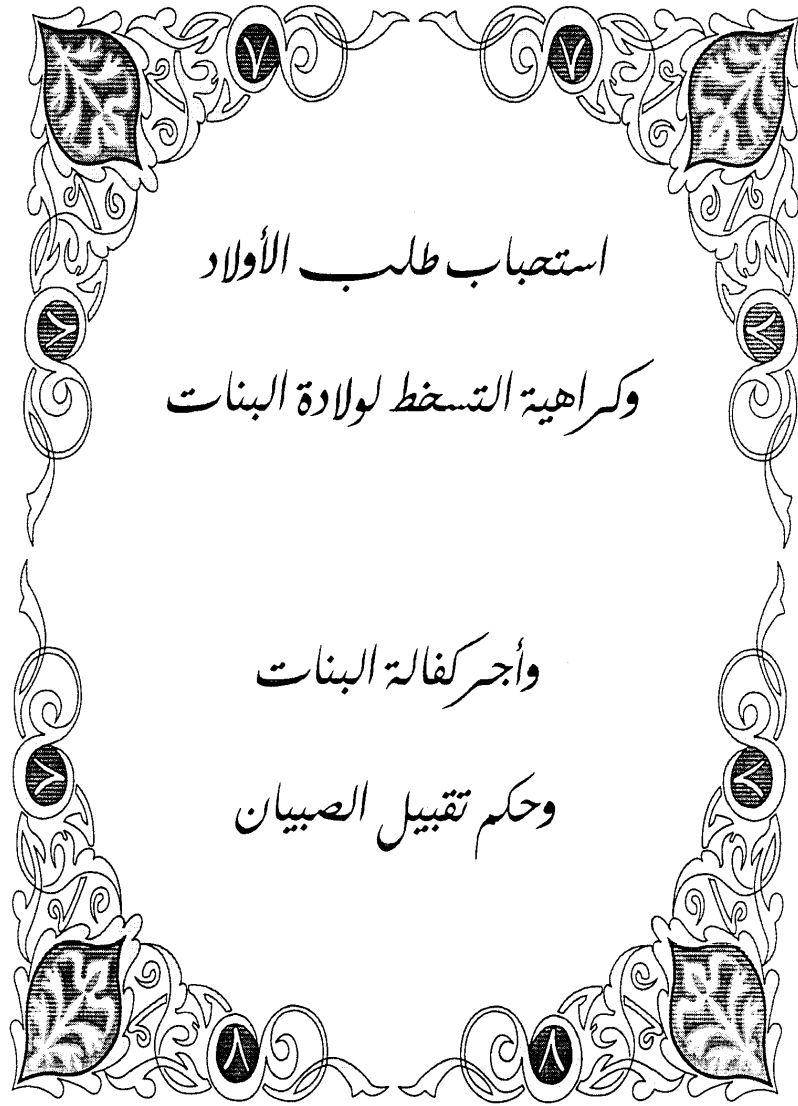 استحباب طلب الأولاد
وكراهية التسخط لولادة البنات
وأجر كفالة البنات
وحكم تقبيل الصبيان